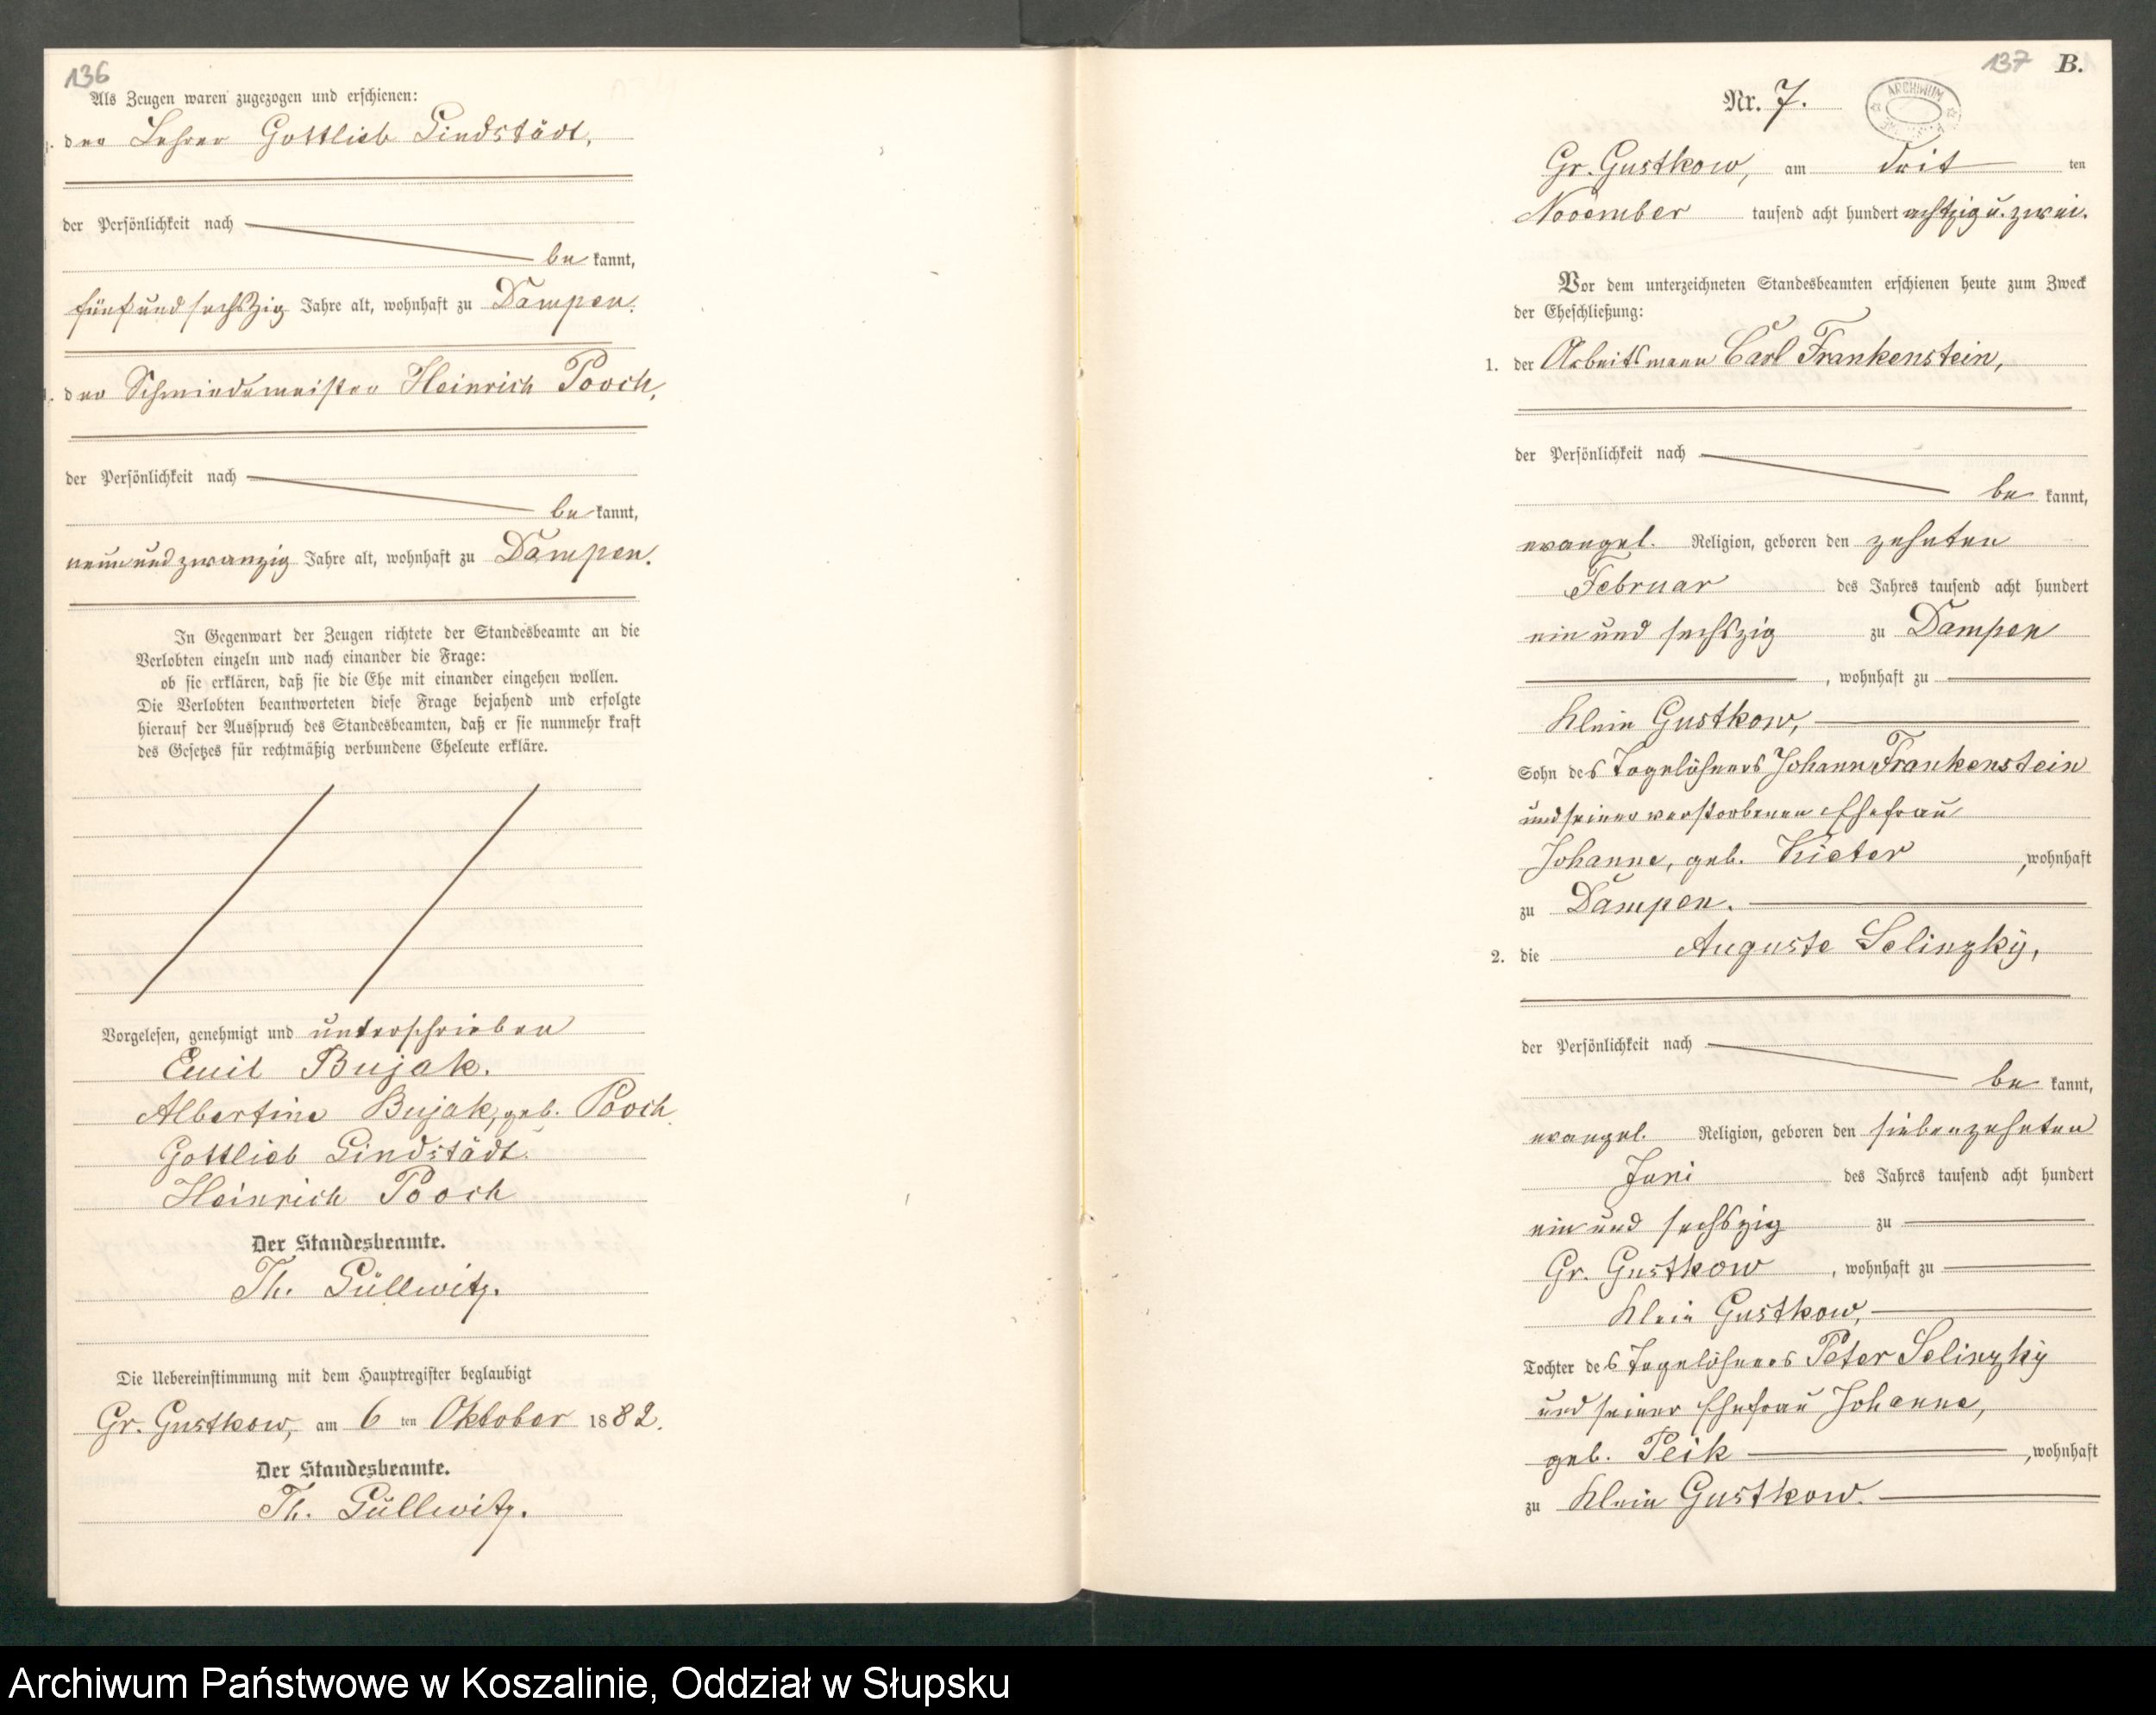 136
Als Zeugen waren zugezogen und erschienen:
der Lehrer Gottlieb Lindstädt,
der Persönlichkeit nach
be kannt,
fünf und sechszig Jahre alt, wohnhaft zu Dampen.
der Schmiedemeister Heinrich Pooch,
der Persönlichkeit nach
be kannt,
neun und zwanzig Jahre alt, wohnhaft zu Dampen.
In Gegenwart der Zeugen richtete der Standesbeamte an die
Verlobten einzeln und nach einander die Frage:
ob sie erklären, daß sie die Ehe mit einander eingehen wollen.
Die Verlobten beantworteten diese Frage bejahend und erfolgte
hierauf der Ausspruch des Standesbeamten, daß er sie nunmehr kraft
des Gesetzes für rechtmäßig verbundene Eheleute erkläre.
Vorgelesen, genehmigt und unterschrieben
Emil Bujak.
Albertine Bujak, geb. Pooch.
Gottlieb Lindstädt.
Heinrich Pooch
Der Standesbeamte.
Th. Güllwitz.
Die Uebereinstimmung mit dem Hauptregister beglaubigt
Gr. Gustkow, am 6 ten Oktober 1882.
Der Standesbeamte.
Th. Güllwitz.
137 B.
Nr. 7.
ARCHIWUM
Gr. Gustkow, am drit ten
November tausend acht hundert achtzig u. zwei.
Vor dem unterzeichneten Standesbeamten erschienen heute zum Zweck
der Eheschließung:
1. der Arbeitsmann Carl Frankenstein,
der Persönlichkeit nach
be kannt,
evangel. Religion, geboren den zehnten
Februar des Jahres tausend acht hundert
ein und sechszig zu Dampen
, wohnhaft zu
Klein Gustkow,
Sohn des Tagelöhners Johann Frankenstein
und seiner verstorbenen Ehefrau
Johanne, geb. Kieter ,wohnhaft
zu Dampen.
2. die Auguste Selinzky,
der Persönlichkeit nach
be kannt,
evangel. Religion, geboren den siebenzehnten
Juni des Jahres tausend acht hundert
ein und sechszig zu
Gr. Gustkow , wohnhaft zu
Klein Gustkow,
Tochter des Tagelöhners Peter Selinzky
und seiner Ehefrau Johanne,
geb. Peik ,wohnhaft
zu Klein Gustkow.
Archiwum Państwowe w Koszalinie, Oddział w Słupsku